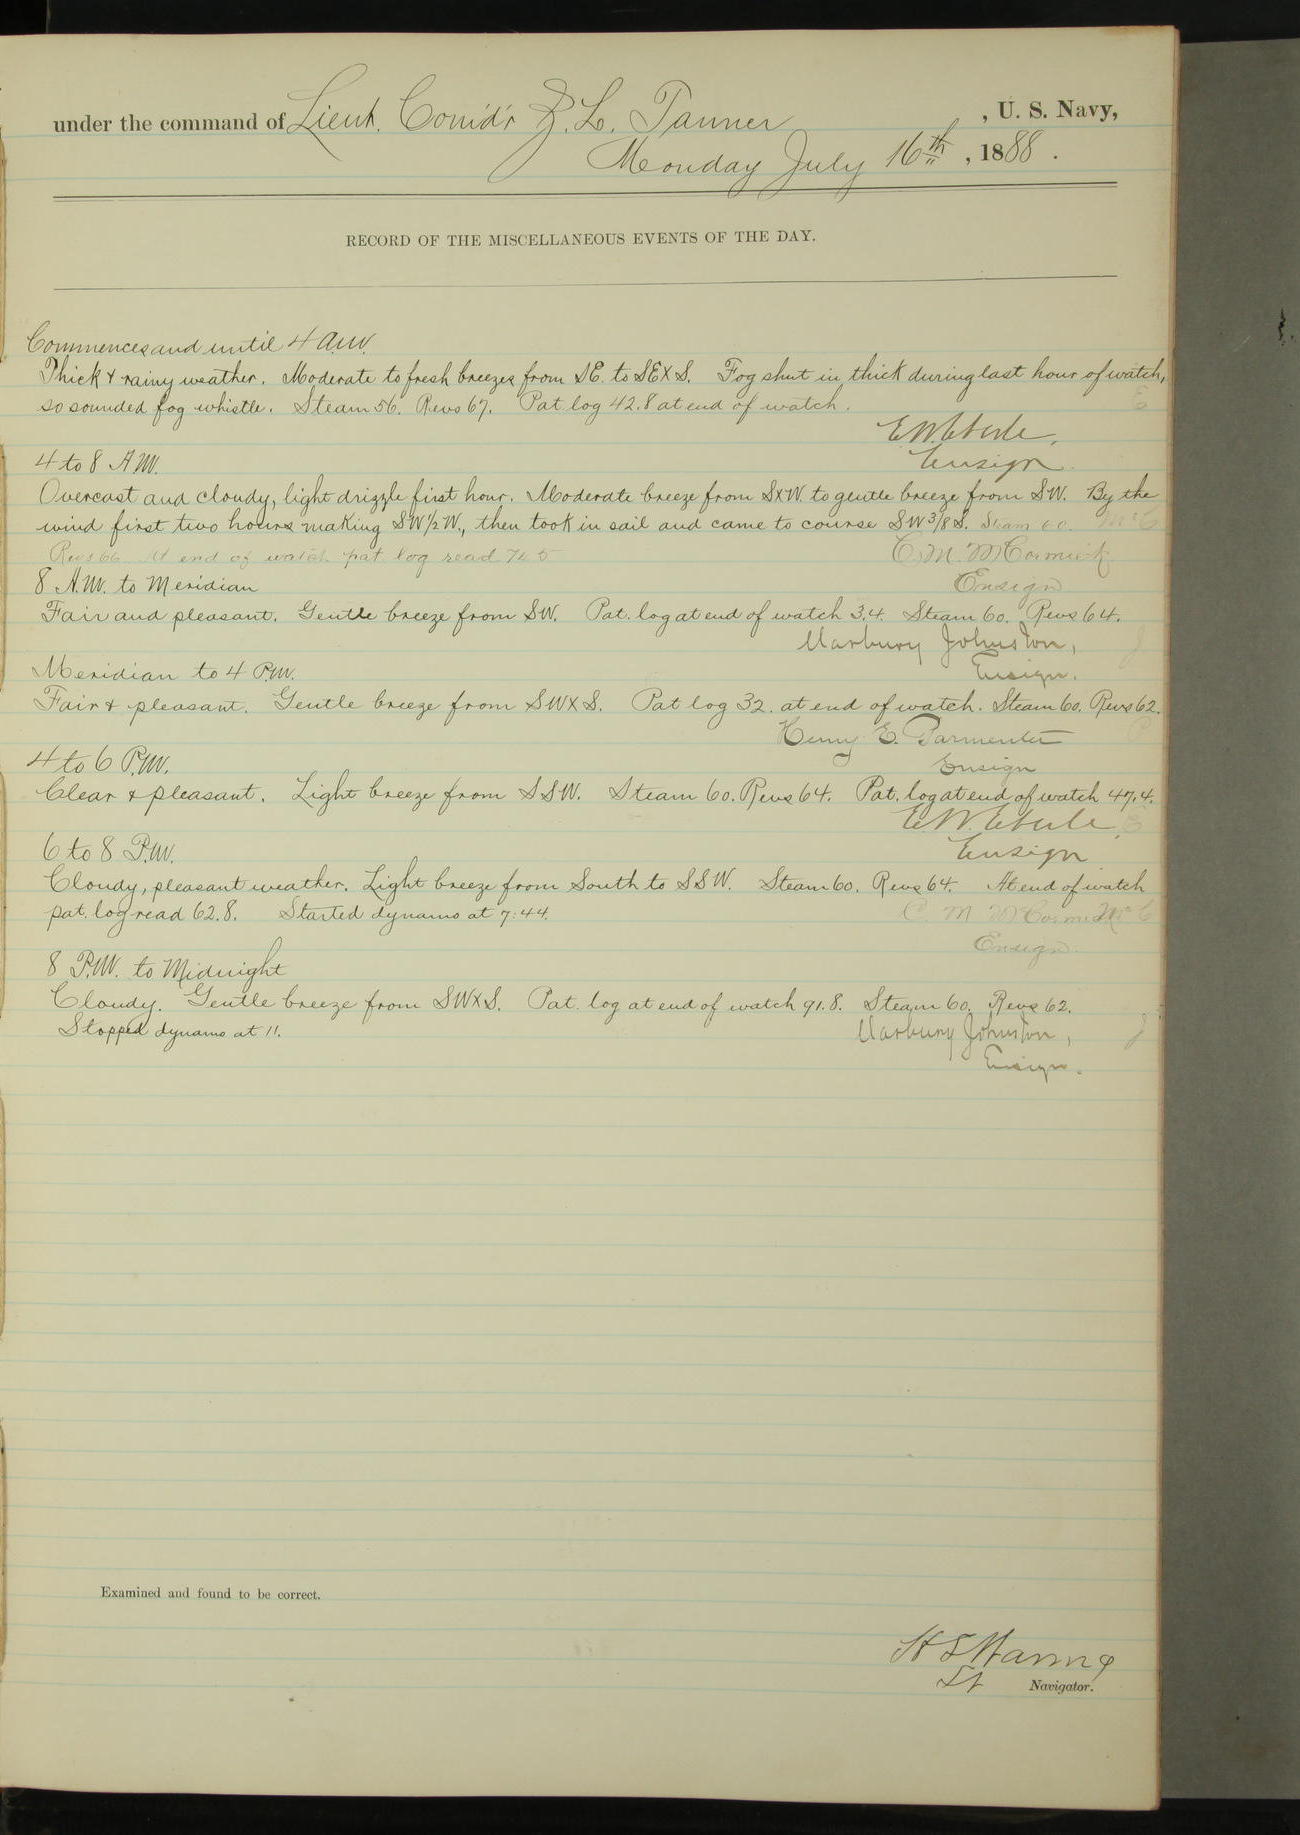 under the command of Lieut. Comd'r Z. L. Tanner, U. S. Navy,
Monday July 16th, 1888.
RECORD OF THE MISCELLANEOUS EVENTS OF THE DAY.
Commences and until 4 A.M.
Thick & rainy weather. Moderate to fresh breezes from SE. to SExS. Fog shut in thick during last hour of watch,
so sounded fog whistle. Steam 56. Revs 67. Pat. log 42.8 at end of watch. E
E.W. Eberle,
Ensign.
4 to 8 A.M.
Overcast and cloudy, light drizzle first hour. Moderate breeze from SxW. to gentle breeze from SW. By the
wind first two hours making SW1/2W., then took in sail and came to course SW3/8S. Steam 60. McC
Revs 66. At end of watch pat log read 74.5
C. M. McCormick
Ensign
8 A.M. to Meridian
Fair and pleasant. Gentle breeze from SW. Pat. log at end of watch 3.4. Steam 60. Revs 64.
Marbury Johnston, J
Ensign.
Meridian to 4 P.M.
Fair & pleasant. Gentle breeze from SWxS. Pat log 32. at end of watch. Steam 60. Revs 62.
Henry E. Parmenter P
Ensign
4 to 6 P.M.
Clear & pleasant. Light breeze from SSW. Steam 60. Revs 64. Pat. log at end of watch 47.4.
E.W. Eberle, E
Ensign
6 to 8 P.M.
Cloudy, pleasant weather. Light breeze from South to SSW. Steam 60. Revs 64. At end of watch
pat. log read 62.8. Started dynamo at 7:44. C. M McCormick McC
Ensign.
8 P.M. to Midnight
Cloudy. Gentle breeze from SWxS. Pat. log at end of watch 91.8. Steam 60. Revs 62.
Stopped dynamo at 11. Marbury Johnston, J
Ensign.
Examined and found to be correct.
H S Waring
Lt Navigator.